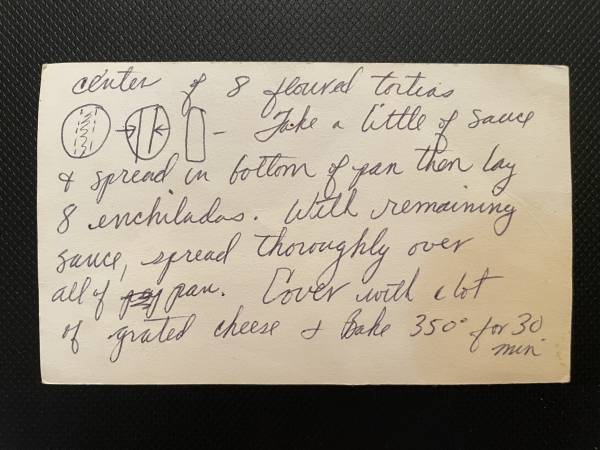 center of 8 floured tortias
- Take a little of sauce
& spread in bottom of pan then lay
8 enchiladas. With remaining
sauce, spread thoroughly over
all of pan. Cover with a lot
of grated cheese & Bake 350° for 30
min.